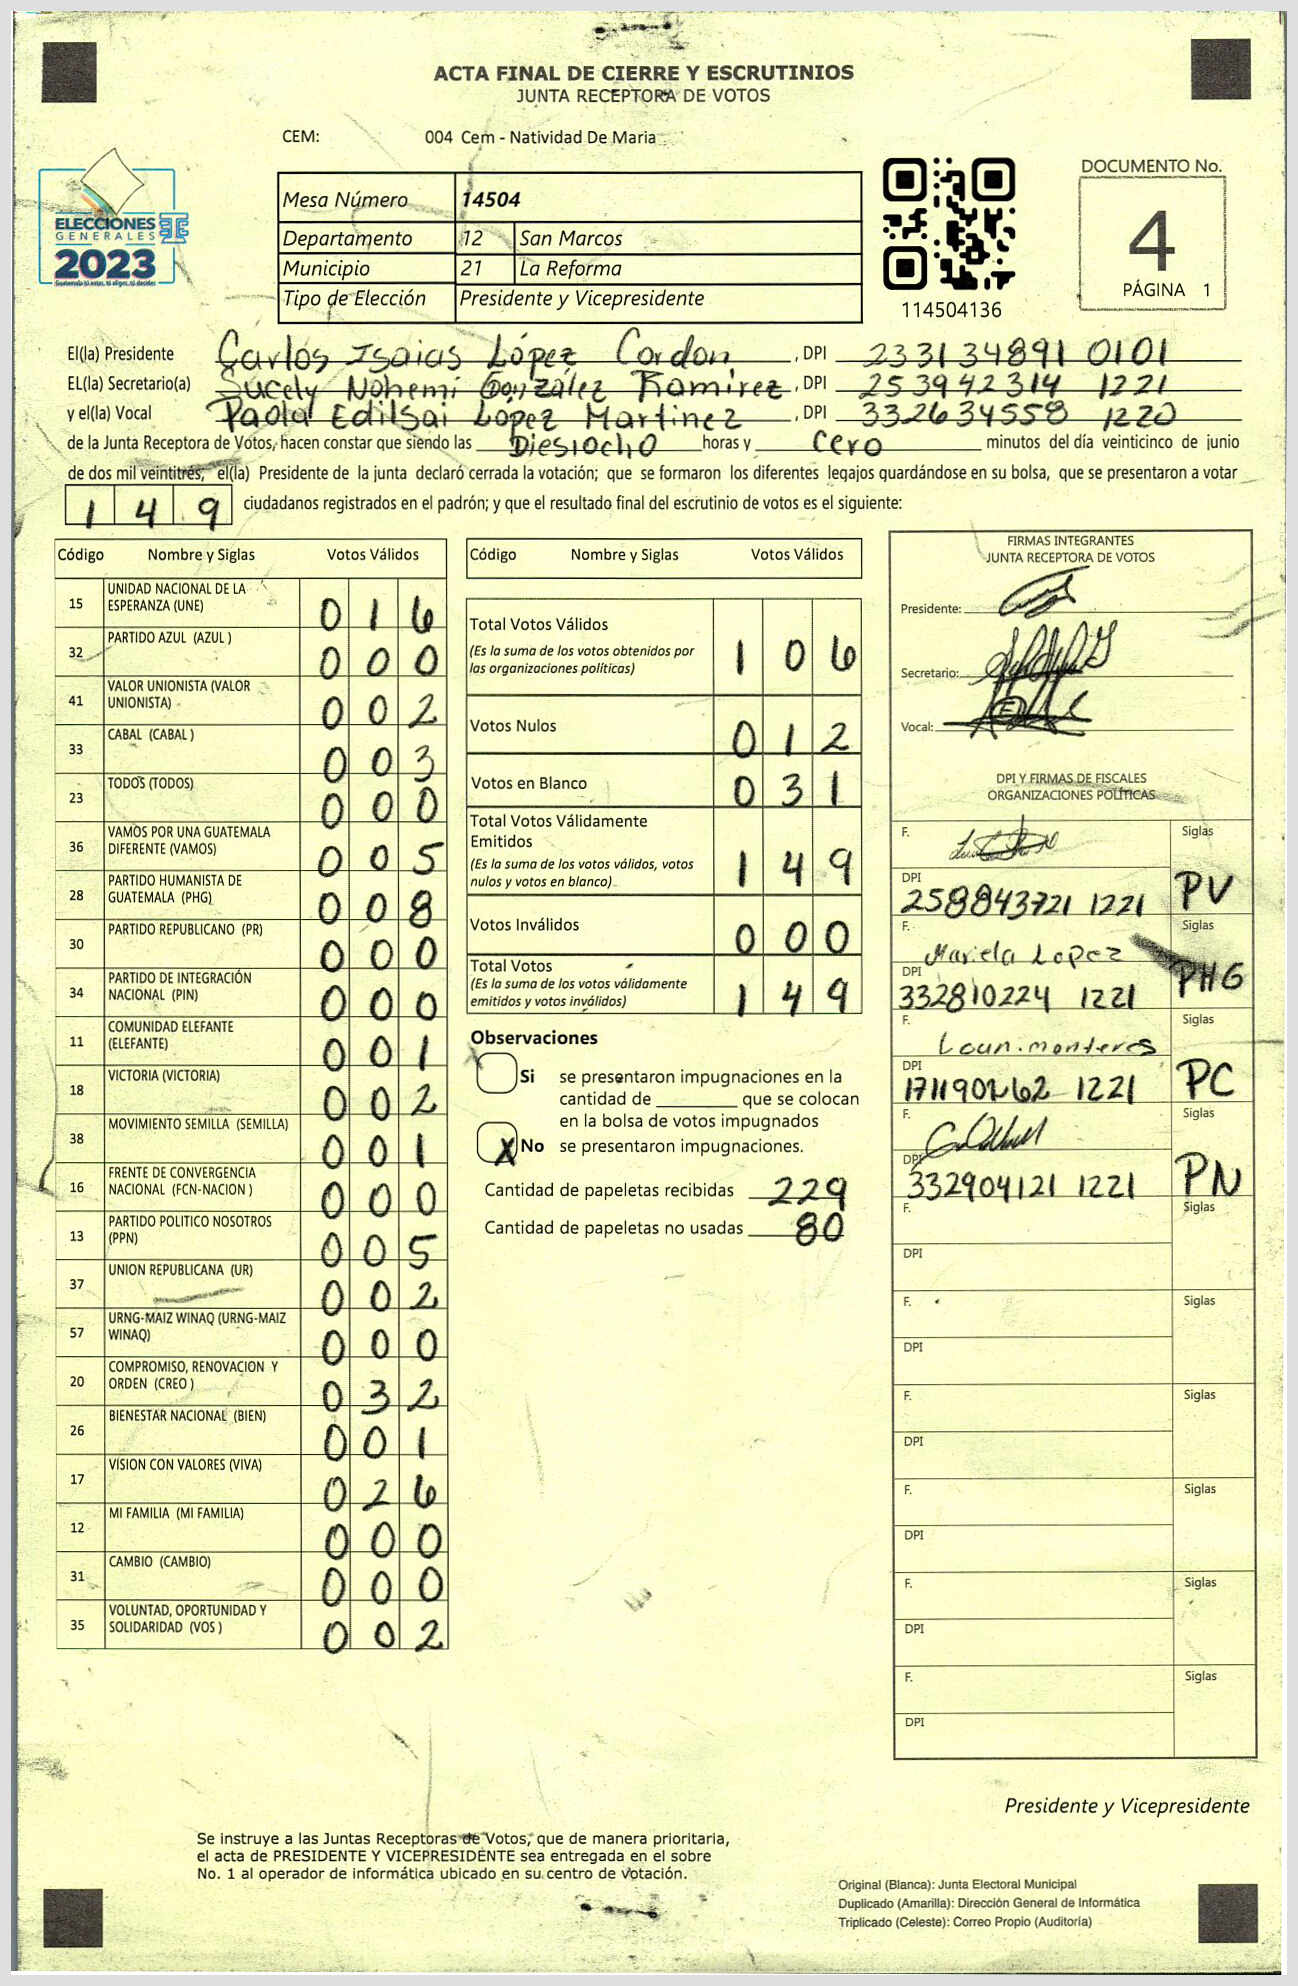 ACTA FINAL DE CIERRE Y ESCRUTINIOS
JUNTA RECEPTORA DE VOTOS
CEM: 004 Cem - Natividad De Maria
DOCUMENTO No.
4
PÁGINA 1
ELECCIONES
GENERALES
2023
Mesa Número 14504
Departamento 12 San Marcos
Municipio 21 La Reforma
Tipo de Elección Presidente y Vicepresidente
114504136
El(la) Presidente Carlos Isaias López Cordon, DPI 233134891 0101
EL(la) Secretario(a) Sucely Nohemi González Ramirez, DPI 253942314 1221
y el(la) Vocal Paola Edilsai López Martinez, DPI 332634558 1220
de la Junta Receptora de Votos, hacen constar que siendo las Diesiocho horas y cero minutos del día veinticinco de junio
de dos mil veintitrés, el(la) Presidente de la junta declaró cerrada la votación; que se formaron los diferentes legajos quardándose en su bolsa, que se presentaron a votar
149 ciudadanos registrados en el padrón; y que el resultado final del escrutinio de votos es el siguiente:
Código Nombre y Siglas Votos Válidos
15 UNIDAD NACIONAL DE LA ESPERANZA (UNE) 016
32 PARTIDO AZUL (AZUL ) 000
41 VALOR UNIONISTA (VALOR UNIONISTA) 002
33 CABAL (CABAL ) 003
23 TODOS (TODOS) 000
36 VAMOS POR UNA GUATEMALA DIFERENTE (VAMOS) 005
28 PARTIDO HUMANISTA DE GUATEMALA (PHG) 008
30 PARTIDO REPUBLICANO (PR) 000
34 PARTIDO DE INTEGRACIÓN NACIONAL (PIN) 000
11 COMUNIDAD ELEFANTE (ELEFANTE) 001
18 VICTORIA (VICTORIA) 002
38 MOVIMIENTO SEMILLA (SEMILLA) 001
16 FRENTE DE CONVERGENCIA NACIONAL (FCN-NACION ) 000
13 PARTIDO POLITICO NOSOTROS (PPN) 005
37 UNION REPUBLICANA (UR) 002
57 URNG-MAIZ WINAQ (URNG-MAIZ WINAQ) 000
20 COMPROMISO, RENOVACION Y ORDEN (CREO ) 032
26 BIENESTAR NACIONAL (BIEN) 001
17 VISION CON VALORES (VIVA) 026
12 MI FAMILIA (MI FAMILIA) 000
31 CAMBIO (CAMBIO) 000
35 VOLUNTAD, OPORTUNIDAD Y SOLIDARIDAD (VOS ) 002
Código Nombre y Siglas Votos Válidos
Total Votos Válidos 106
(Es la suma de los votos obtenidos por
las organizaciones políticas)
Votos Nulos 012
Votos en Blanco 031
Total Votos Válidamente
Emitidos 149
(Es la suma de los votos válidos, votos
nulos y votos en blanco)
Votos Inválidos 000
Total Votos 149
(Es la suma de los votos válidamente
emitidos y votos inválidos)
Observaciones
Si se presentaron impugnaciones en la
cantidad de ________ que se colocan
en la bolsa de votos impugnados
X No se presentaron impugnaciones.
Cantidad de papeletas recibidas 229
Cantidad de papeletas no usadas 80
FIRMAS INTEGRANTES
JUNTA RECEPTORA DE VOTOS
Presidente:
Secretario:
Vocal:
DPI Y FIRMAS DE FISCALES
ORGANIZACIONES POLÍTICAS
F. Siglas
DPI 258843721 1221 PV
F. Mariela Lopez Siglas
DPI 332810224 1221 PHG
F. Siglas
DPI 1221 PC
F. Siglas
DPI 332904121 1221 PN
F. Siglas
DPI
F. Siglas
DPI
F. Siglas
DPI
F. Siglas
DPI
F. Siglas
DPI
F. Siglas
DPI
Presidente y Vicepresidente
Se instruye a las Juntas Receptoras de Votos, que de manera prioritaria,
el acta de PRESIDENTE Y VICEPRESIDENTE sea entregada en el sobre
No. 1 al operador de informática ubicado en su centro de votación.
Original (Blanca): Junta Electoral Municipal
Duplicado (Amarilla): Dirección General de Informática
Triplicado (Celeste): Correo Propio (Auditoría)